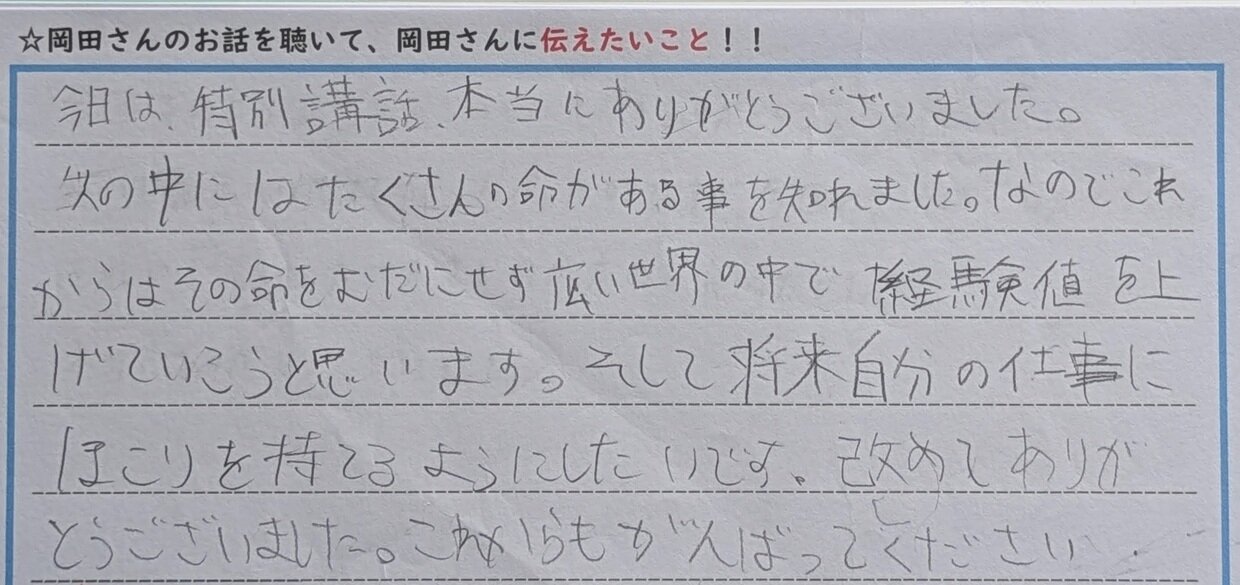 ☆岡田さんのお話を聴いて、岡田さんに伝えたいこと!!
今日は、特別講話、本当にありがとうございました。
の中にはたくさんの命がある事を知れました。なのでこれ
からはその命をむだにせず広い世界の中で経験値を上
げていこうと思います。そして将来自分の仕事に
ほこりを持てるようにしたいです。改めてありが
とうございました。これからもがんばってください